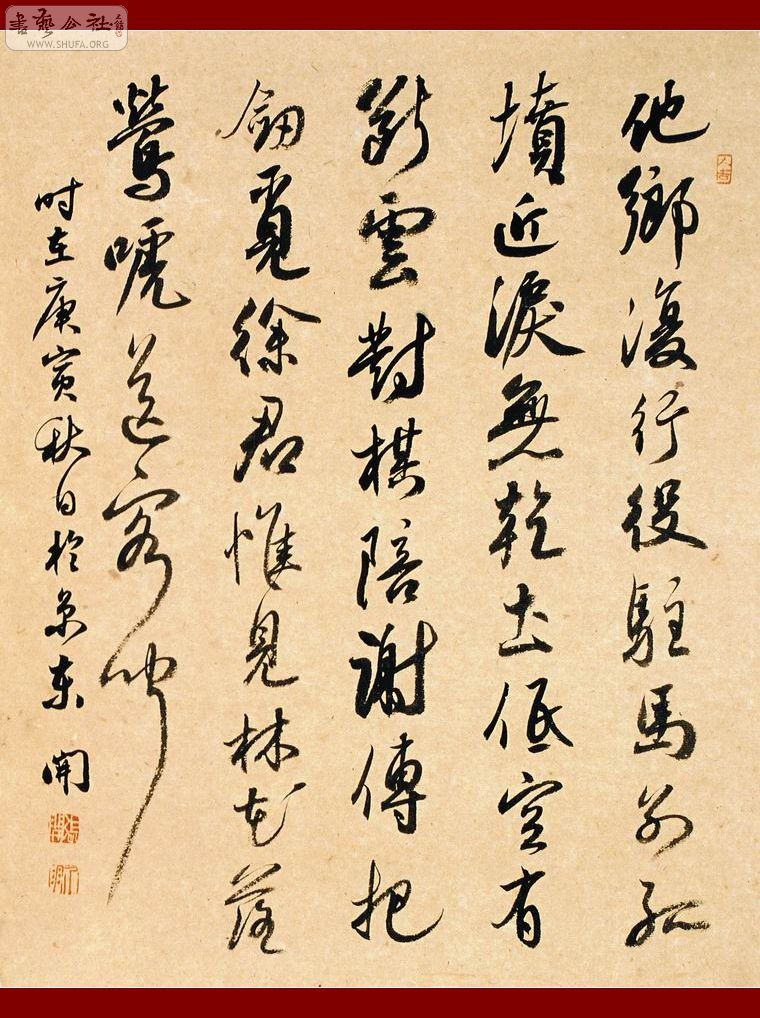 書藝公社
WWW.SHUFA.ORG
他鄉復行役駐馬別孤
墳近淚無乾土低空有
斷雲對棋陪謝傅把
劍覓徐君惟見林花落
鶯啼送客聞
时在庚寅秋日於京东 開